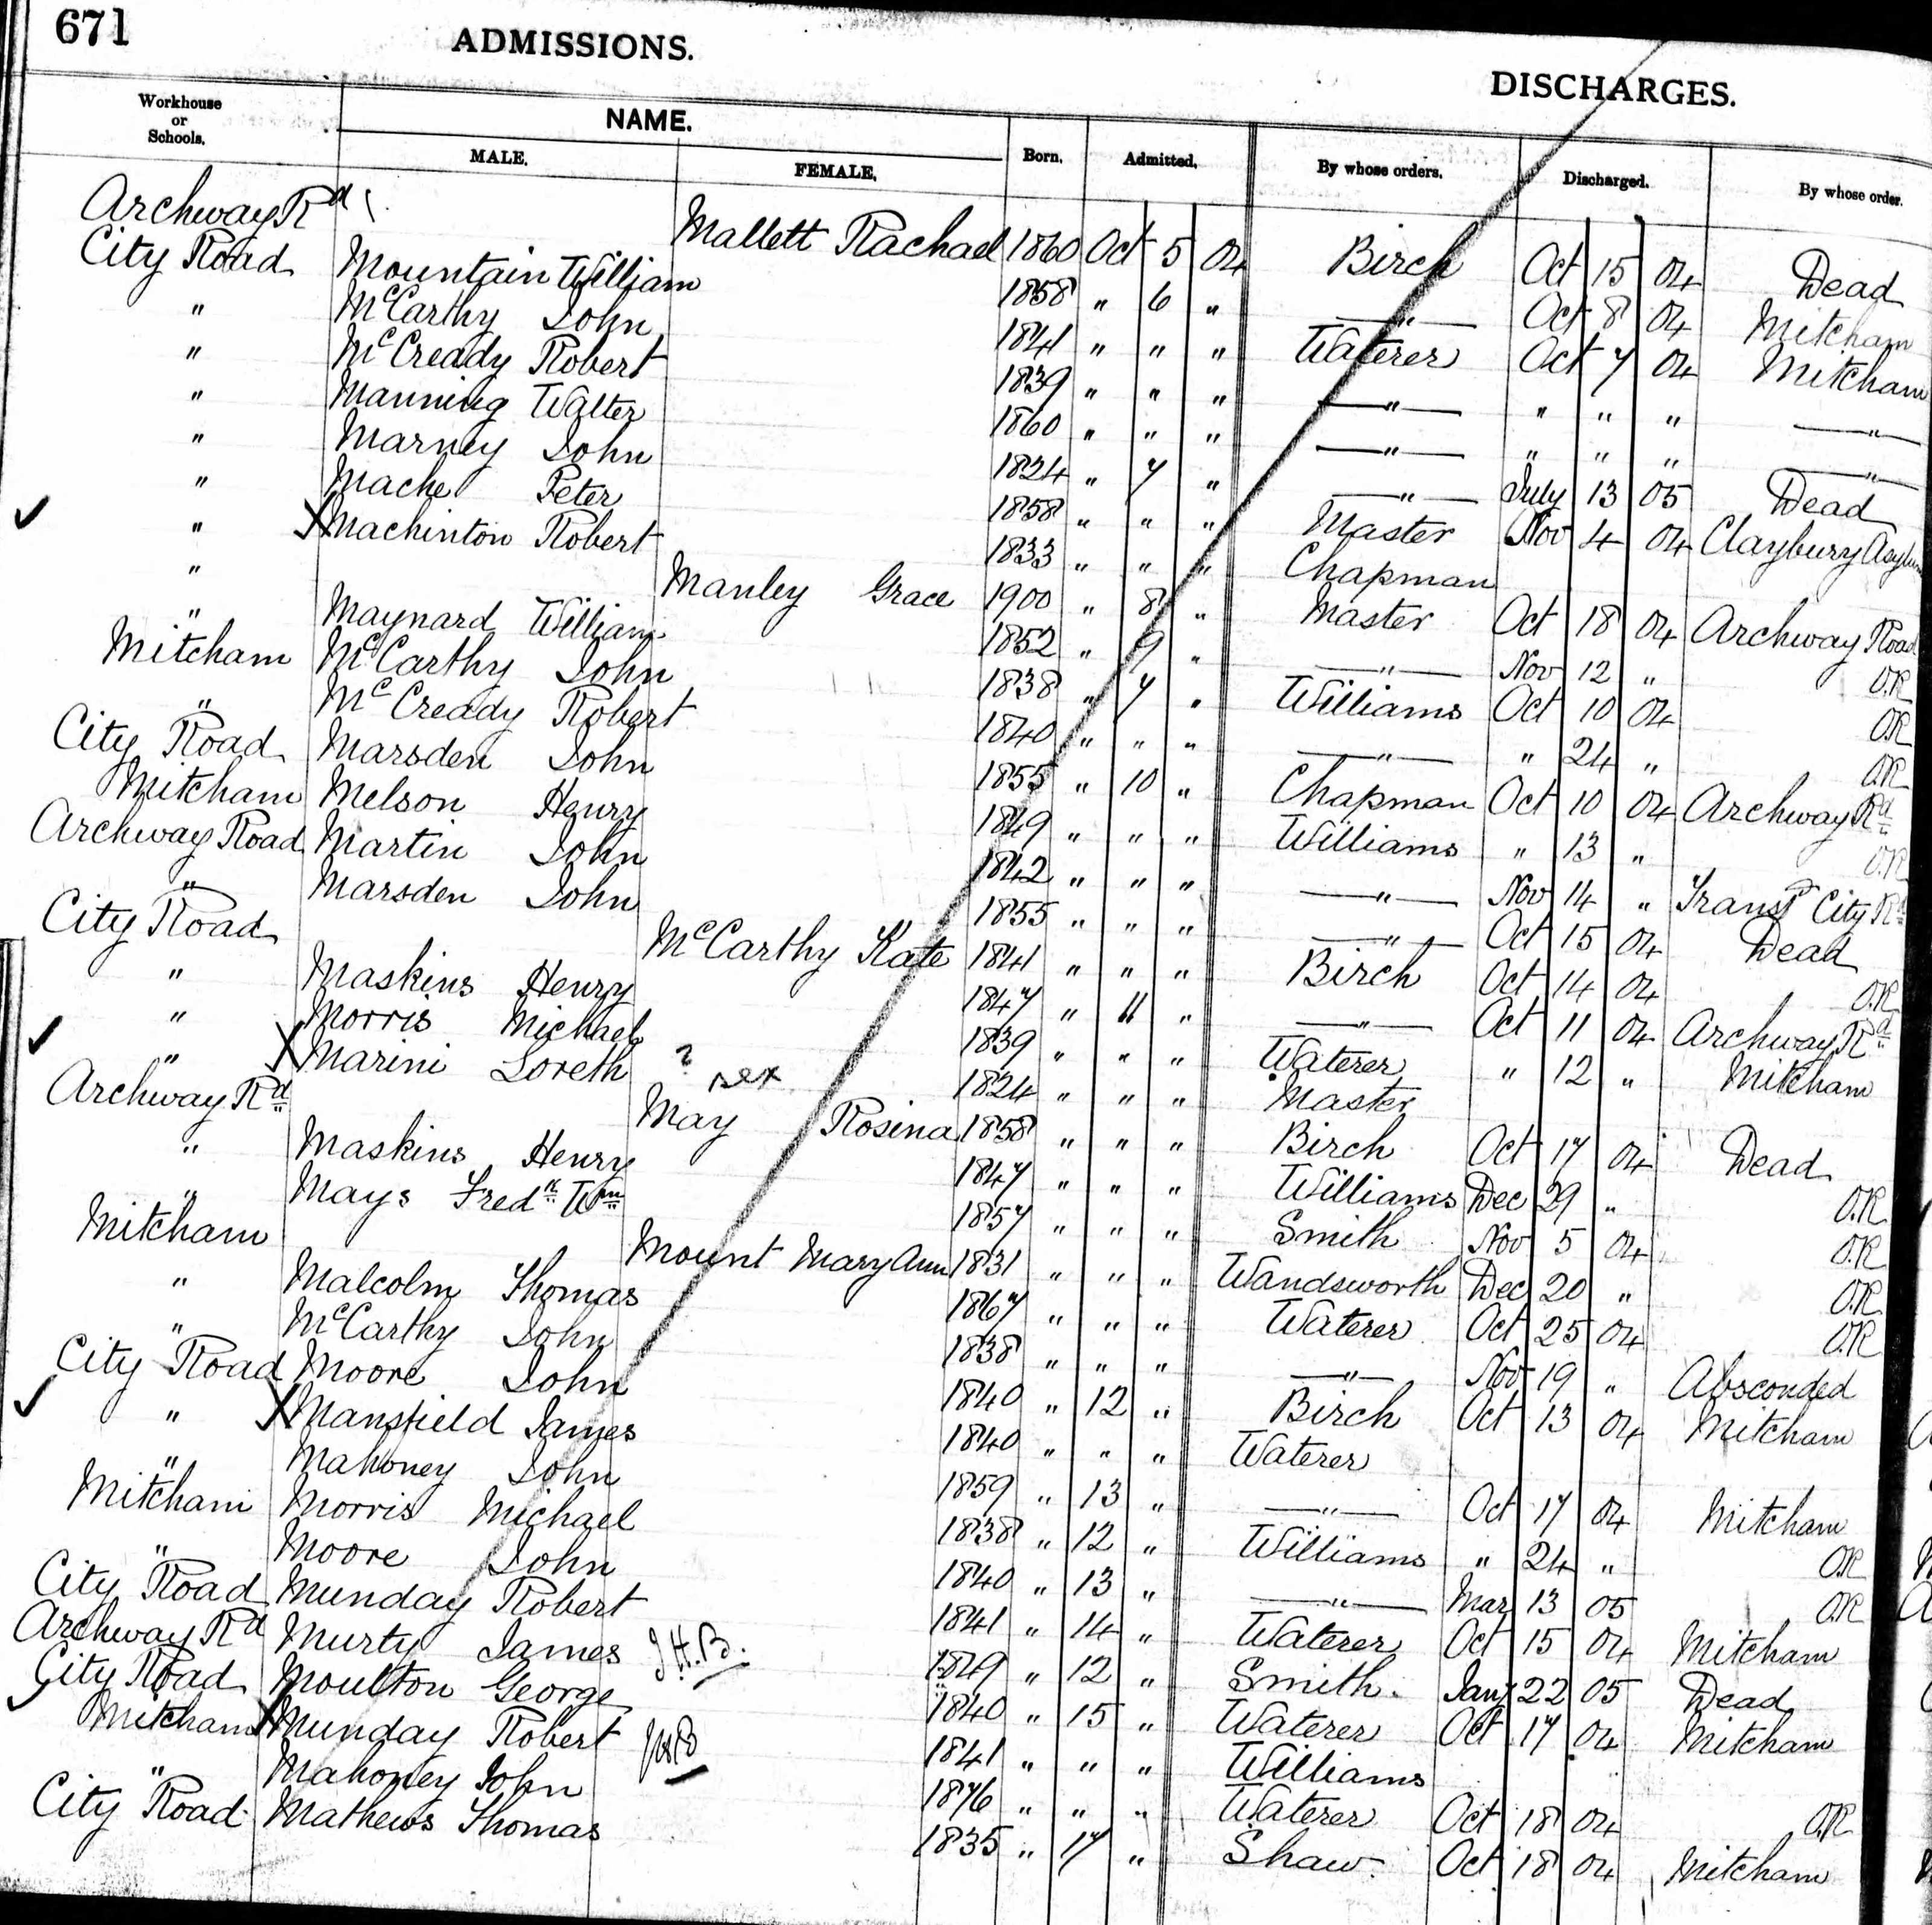 671 ADMISSIONS. DISCHARGES.
Workhouse or Schools. NAME. MALE. FEMALE. Born. Admitted. By whose orders. Discharged. By whose order.
Archway Rd Mallett Rachael 1860 Oct 5 04 Birch Oct 15 04 Dead
City Road Mountain William 1858 " 6 " —"— Oct 8 04 Mitcham
" McCarthy John 1841 " " " Waterer Oct 7 04 Mitcham
" McCready Robert 1839 " " " —"— " " " —"—
" Manning Walter 1860 " " " —"— " " " —"—
" Marney John 1824 " 7 " —"— July 13 05 Dead
" Mache Peter 1858 " " " Master Nov 4 04 Claybury Asylum
✓ " X Machinton Robert 1833 " " " Chapman
" Manley Grace 1900 " 8 " Master Oct 18 04 Archway Road
" Maynard William 1852 " 9 " —"— Nov 12 " O.R
Mitcham McCarthy John 1838 " 7 " Williams Oct 10 04 O.R
" McCready Robert 1840 " " " —"— " 24 " O.R
City Road Marsden John 1855 " 10 " Chapman Oct 10 04 Archway Rd
Mitcham Melson Henry 1849 " " " Williams " 13 " O.R
Archway Road Martin John 1842 " " " —"— Nov 14 " Transf City Rd
" Marsden John 1855 " " " —"— Oct 15 04 Dead
City Road McCarthy Kate 1841 " " " Birch Oct 14 04 O.R
" Maskins Henry 1847 " 11 " —"— Oct 11 04 Archway Rd
" Morris Michael 1839 " " " Waterer " 12 " Mitcham
✓ " X Marini Loreth ? sex 1824 " " " Master
Archway Rd May Rosina 1858 " " " Birch Oct 17 04 Dead
" Maskins Henry 1847 " " " Williams Dec 29 " O.R
" Mays Fredk Wm 1857 " " " Smith Nov 5 04 O.R
Mitcham Mount Mary Ann 1831 " " " Wandsworth Dec 20 " O.R
" Malcolm Thomas 1867 " " " Waterer Oct 25 04 O.R
" McCarthy John 1838 " " " —"— Nov 19 " Absconded
City Road Moore John 1840 " 12 " Birch Oct 13 04 Mitcham
✓ " X Mansfield James 1840 " " " Waterer
" Mahoney John 1859 " 13 " —"— Oct 17 04 Mitcham
Mitcham Morris Michael 1838 " 12 " Williams " 24 " O.R
" Moore John 1840 " 13 " —"— Mar 13 05 O.R
City Road Munday Robert 1841 " 14 " Waterer Oct 15 04 Mitcham
Archway Rd Murty James J.H.B. 1849 " 12 " Smith Jany 22 05 Dead
City Road Moulton George 1840 " 15 " Waterer Oct 17 04 Mitcham
✓ Mitcham X Munday Robert 1841 " " " Williams
" Mahoney John 1876 " " " Waterer Oct 18 04 O.R
City Road Mathews Thomas 1835 " 17 " Shaw Oct 18 04 Mitcham